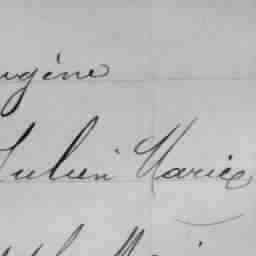 ugène
Julien Marie